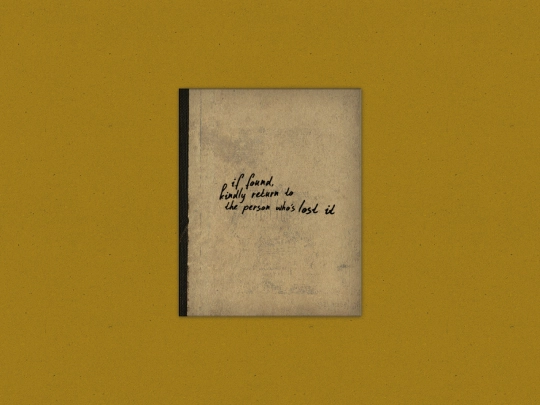 if found,
kindly return to
the person who's lost it